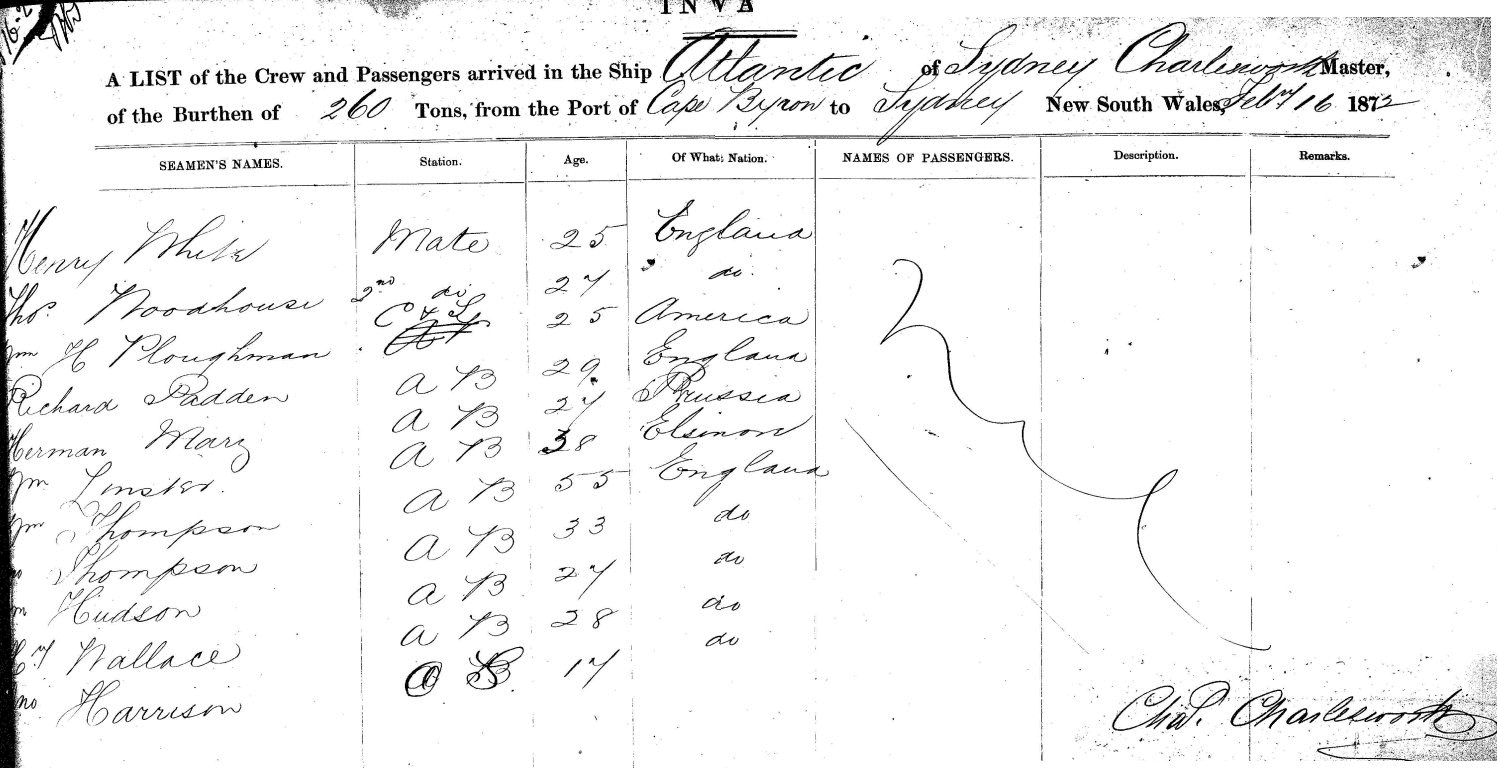 INVA
A LIST of the Crew and Passengers arrived in the Ship Atlantic of Sydney Charlesworth Master,
of the Burthen of 260 Tons, from the Port of Cape Byron to Sydney New South Wales, Feby 16 1872
SEAMEN'S NAMES. Station. Age. Of What Nation. NAMES OF PASSENGERS. Description. Remarks.
Henry White Mate 25 England
Thos. Woodhouse 2nd do 27 do
Wm H Ploughman C & S 25 America
Richard Padden A B 29 England
Herman Marz A B 27 Prussia
Wm Linster. A B 38 Elsinor
Wm Thompson A B 55 England
Thompson A B 33 do
Hudson A B 27 do
Hy Wallace A B 28 do
Jno Harrison O S 17 do
Chas. Charlesworth